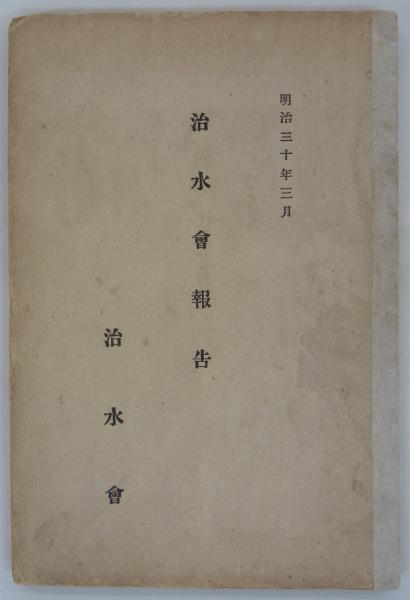 明治三十年三月
治水會報告
治水會